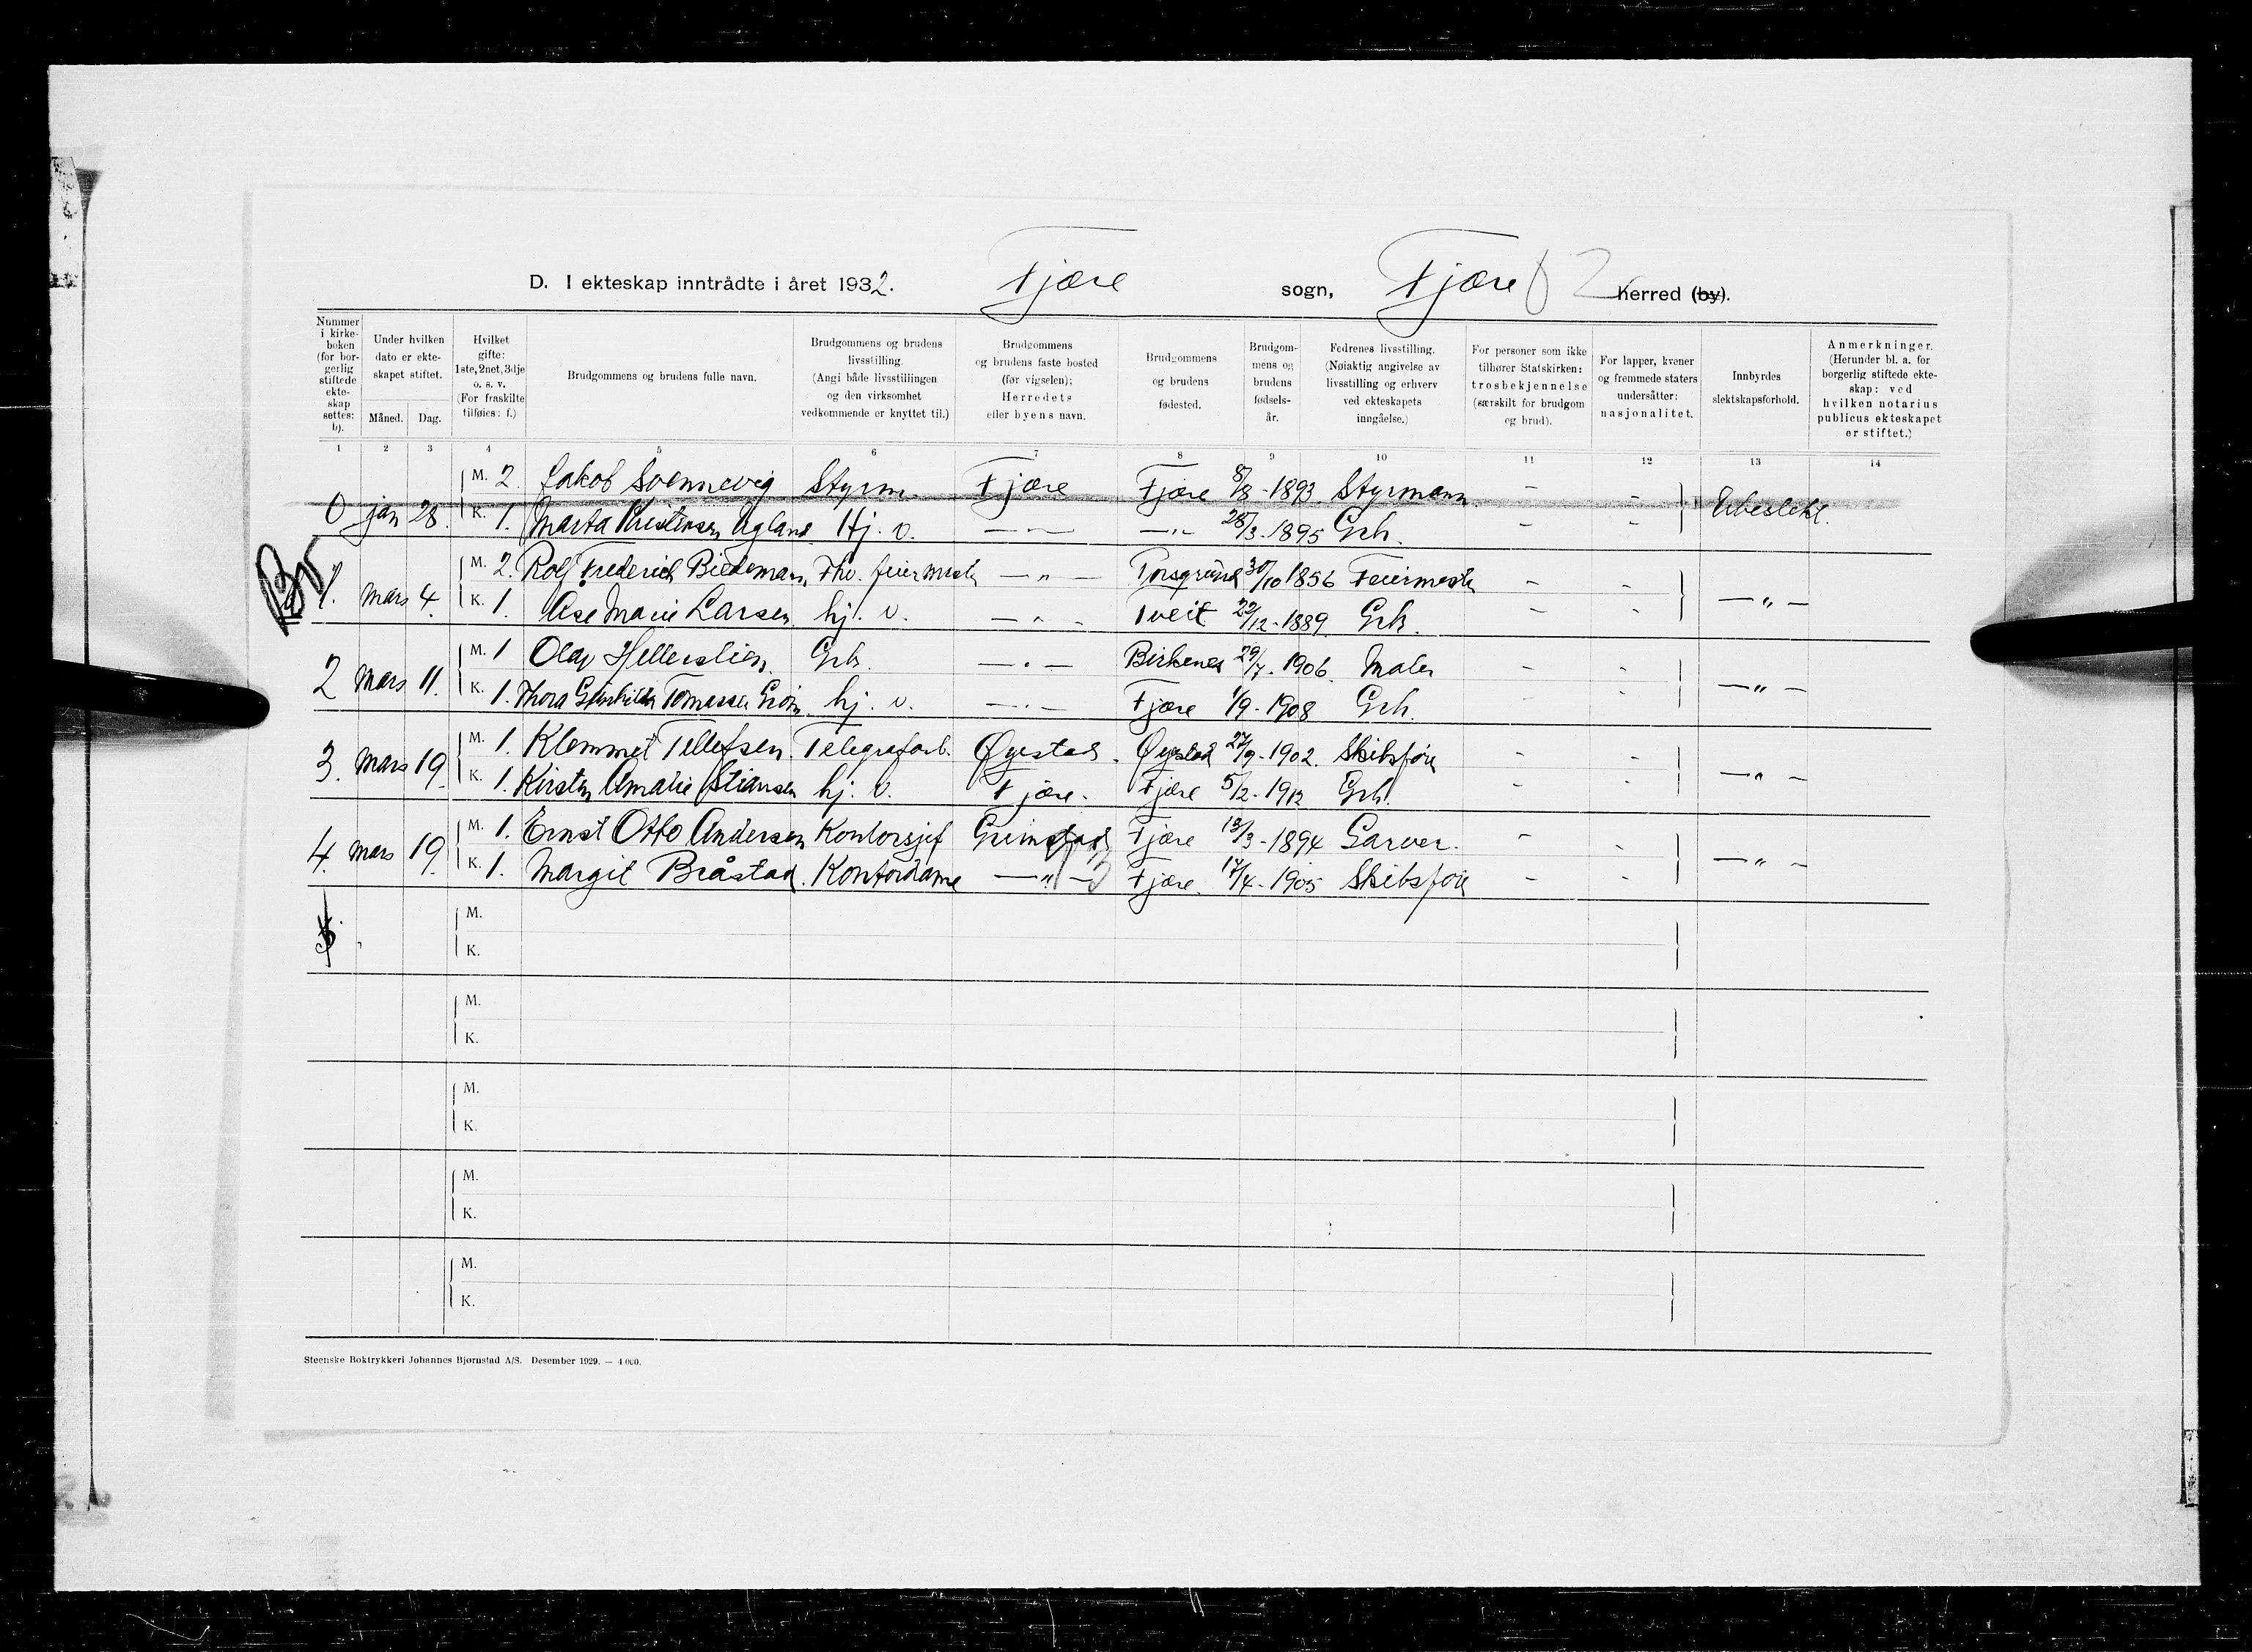 D. I ekteskap inntrådte i året 1932. Fjære sogn, Fjære herred (by).
Nummer i kirkeboken (for borgerlig stiftede ekteskap settes: b).
Under hvilken dato er ekteskapet stiftet.
Måned. Dag.
Hvilket gifte: 1ste, 2net, 3dje o. s. v. (For fraskilte tilføies: f.)
Brudgommens og brudens fulle navn.
Brudgommens og brudens livsstilling. (Angi både livsstillingen og den virksomhet vedkommende er knyttet til.)
Brudgommens og brudens faste bosted (før vigselen); Herredets eller byens navn.
Brudgommens og brudens fødested.
Brudgommens og brudens fødselsår.
Fedrenes livsstilling. (Nøiaktig angivelse av livsstilling og erhverv ved ekteskapets inngåelse.)
For personer som ikke tilhører Statskirken: trosbekjennelse (særskilt for brudgom og brud).
For lapper, kvener og fremmede staters undersåtter: nasjonalitet.
Innbyrdes slektskapsforhold.
Anmerkninger. (Herunder bl. a. for borgerlig stiftede ekteskap: ved hvilken notarius publicus ekteskapet er stiftet.)
1 2 3 4 5 6 7 8 9 10 11 12 13 14
M. 2. Jakob Svennevig Styrm. Fjære Fjære 8/8-1893 Styrmann - -
0 jan 28. K. 1. Marta Kristensen Ugland Hj. v. —„— —„— 28/3-1895 Grb. - - Ubeslekt.
Br
M. 2. Rolf Frederich Biedemann Fhv. feiermester —„— Porsgrund 30/10 1856 Feiermester - -
1. Mars 4. K. 1. Åse Marie Larsen hj. v. —„— Tveit 22/12-1889 Grb. - - —„—
M. 1 Olav Hellerslien Grb. —„— Birkenes 29/7-1906. Maler - -
2 Mars 11. K. 1. Thora Tomassen hj. v. —„— Fjære 1/9-1908 Grb. - - —„—
M. 1. Klemmet Tellefsen. Telegrafarb. Øyestad. Øyestad 27/9-1902. Skibsfører - -
3. Mars 19. K. 1. Kirsten Amalie Stiansen hj. v. Fjære. Fjære 5/2-1912 Grb. - - —„—
M. 1. Ernst Otto Andersen Kontorsjef Grimstad Fjære 13/3-1894 Garver. - -
4. Mars 19. K. 1. Margit Bråstad. Kontordame —„— Fjære. 17/4-1905 Skibsfører - - —„—
M.
K.
M.
K.
M.
K.
M.
K.
M.
K.
Steenske Boktrykkeri Johannes Bjørnstad A/S. Desember 1929. — 4 000.